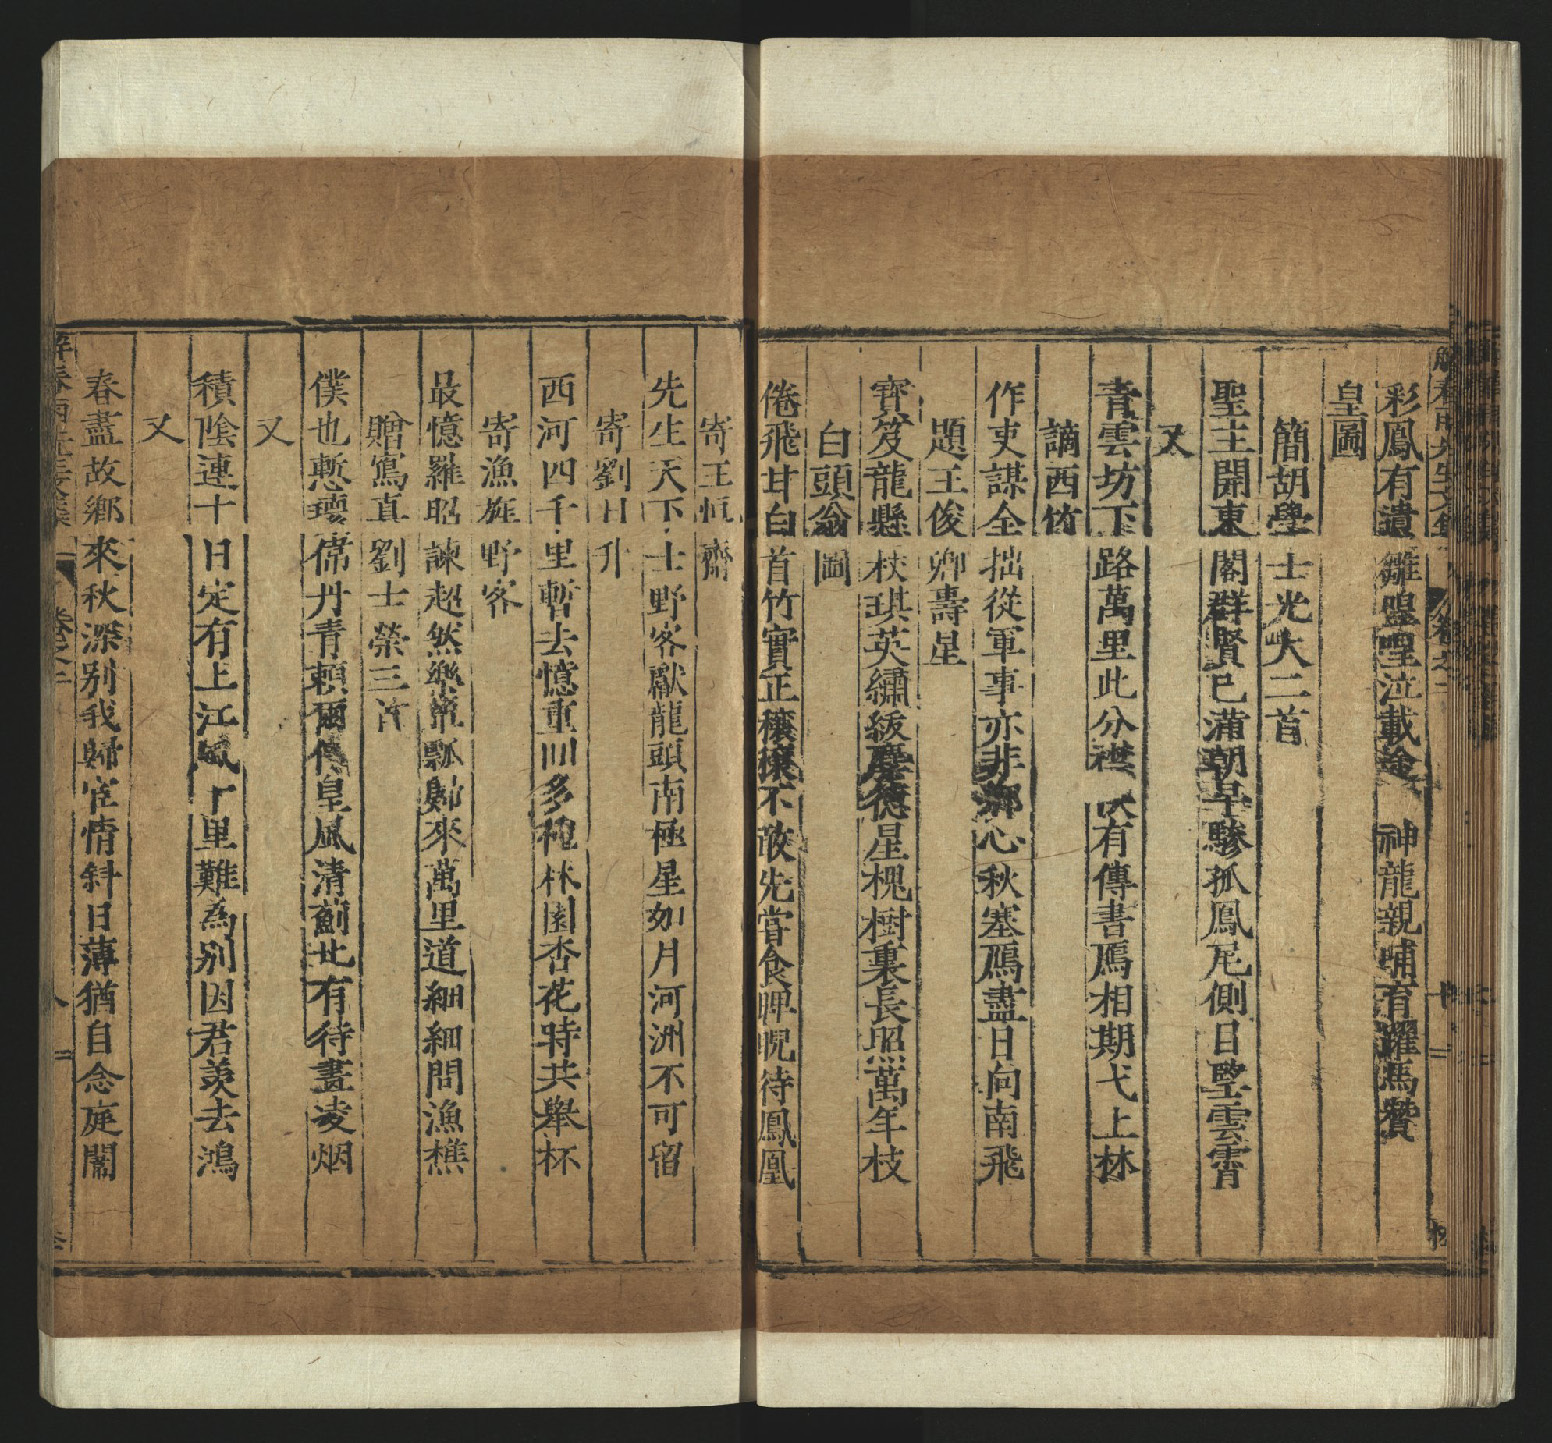 彩鳳有遺雛喤喤泣載塗神龍親哺育躍馬贊
皇圖
簡胡學士光大二首
聖主開東閣群賢已滿朝早驂孤鳳尾側目墅雲霄
又
青雲坊下路萬里此分襟有傳書鴈相期弋上林
謫西竹
作吏謀全拙從軍事亦非鄉心秋塞鴈盡日向南飛
題王俊卿壽星
寳笈龍縣杖琪英繡紱麐德星槐樹裏長照萬年枝
白頭翁圖
倦飛甘白首竹實正穰穰不敢先嘗食睥睨待鳳凰
寄王恒齋
先生天下士野客獻龍頭南極星如月河洲不可留
寄劉日升
西河四千里暫去憶重回多種林園杏花時共舉杯
寄漁旌野客
最憶羅昭諫超然樂簞瓢歸來萬里道細細問漁樵
贈寫真劉士榮三首
僕也慙瓌偉丹青賴爾傳皇風清薊北有待畫凌烟
又
積陰連十日定有上江風十里難為別因君羨去鴻
又
春盡故鄉來秋深別我歸宦情斜日薄猶自念庭闈
解春雨先生文集 卷之二 八